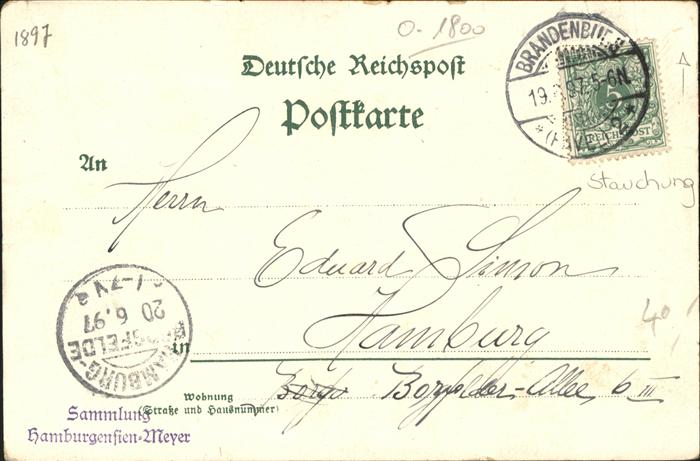 1897
0.-1800
Deutsche Reichspost
Postkarte
BRANDENBURG
19. 97. 5-6N.
*(HAVEL) 2*
5
REICHSPOST
An
Stauchung
Herrn
Eduard Simon
Hamburg
40
in
HAMBURG-
20 6.97
1-7N
Borgfelder-Allee 6 III
Wohnung
(Straße und Hausnummer)
Sammlung
Hamburgensien-Meyer